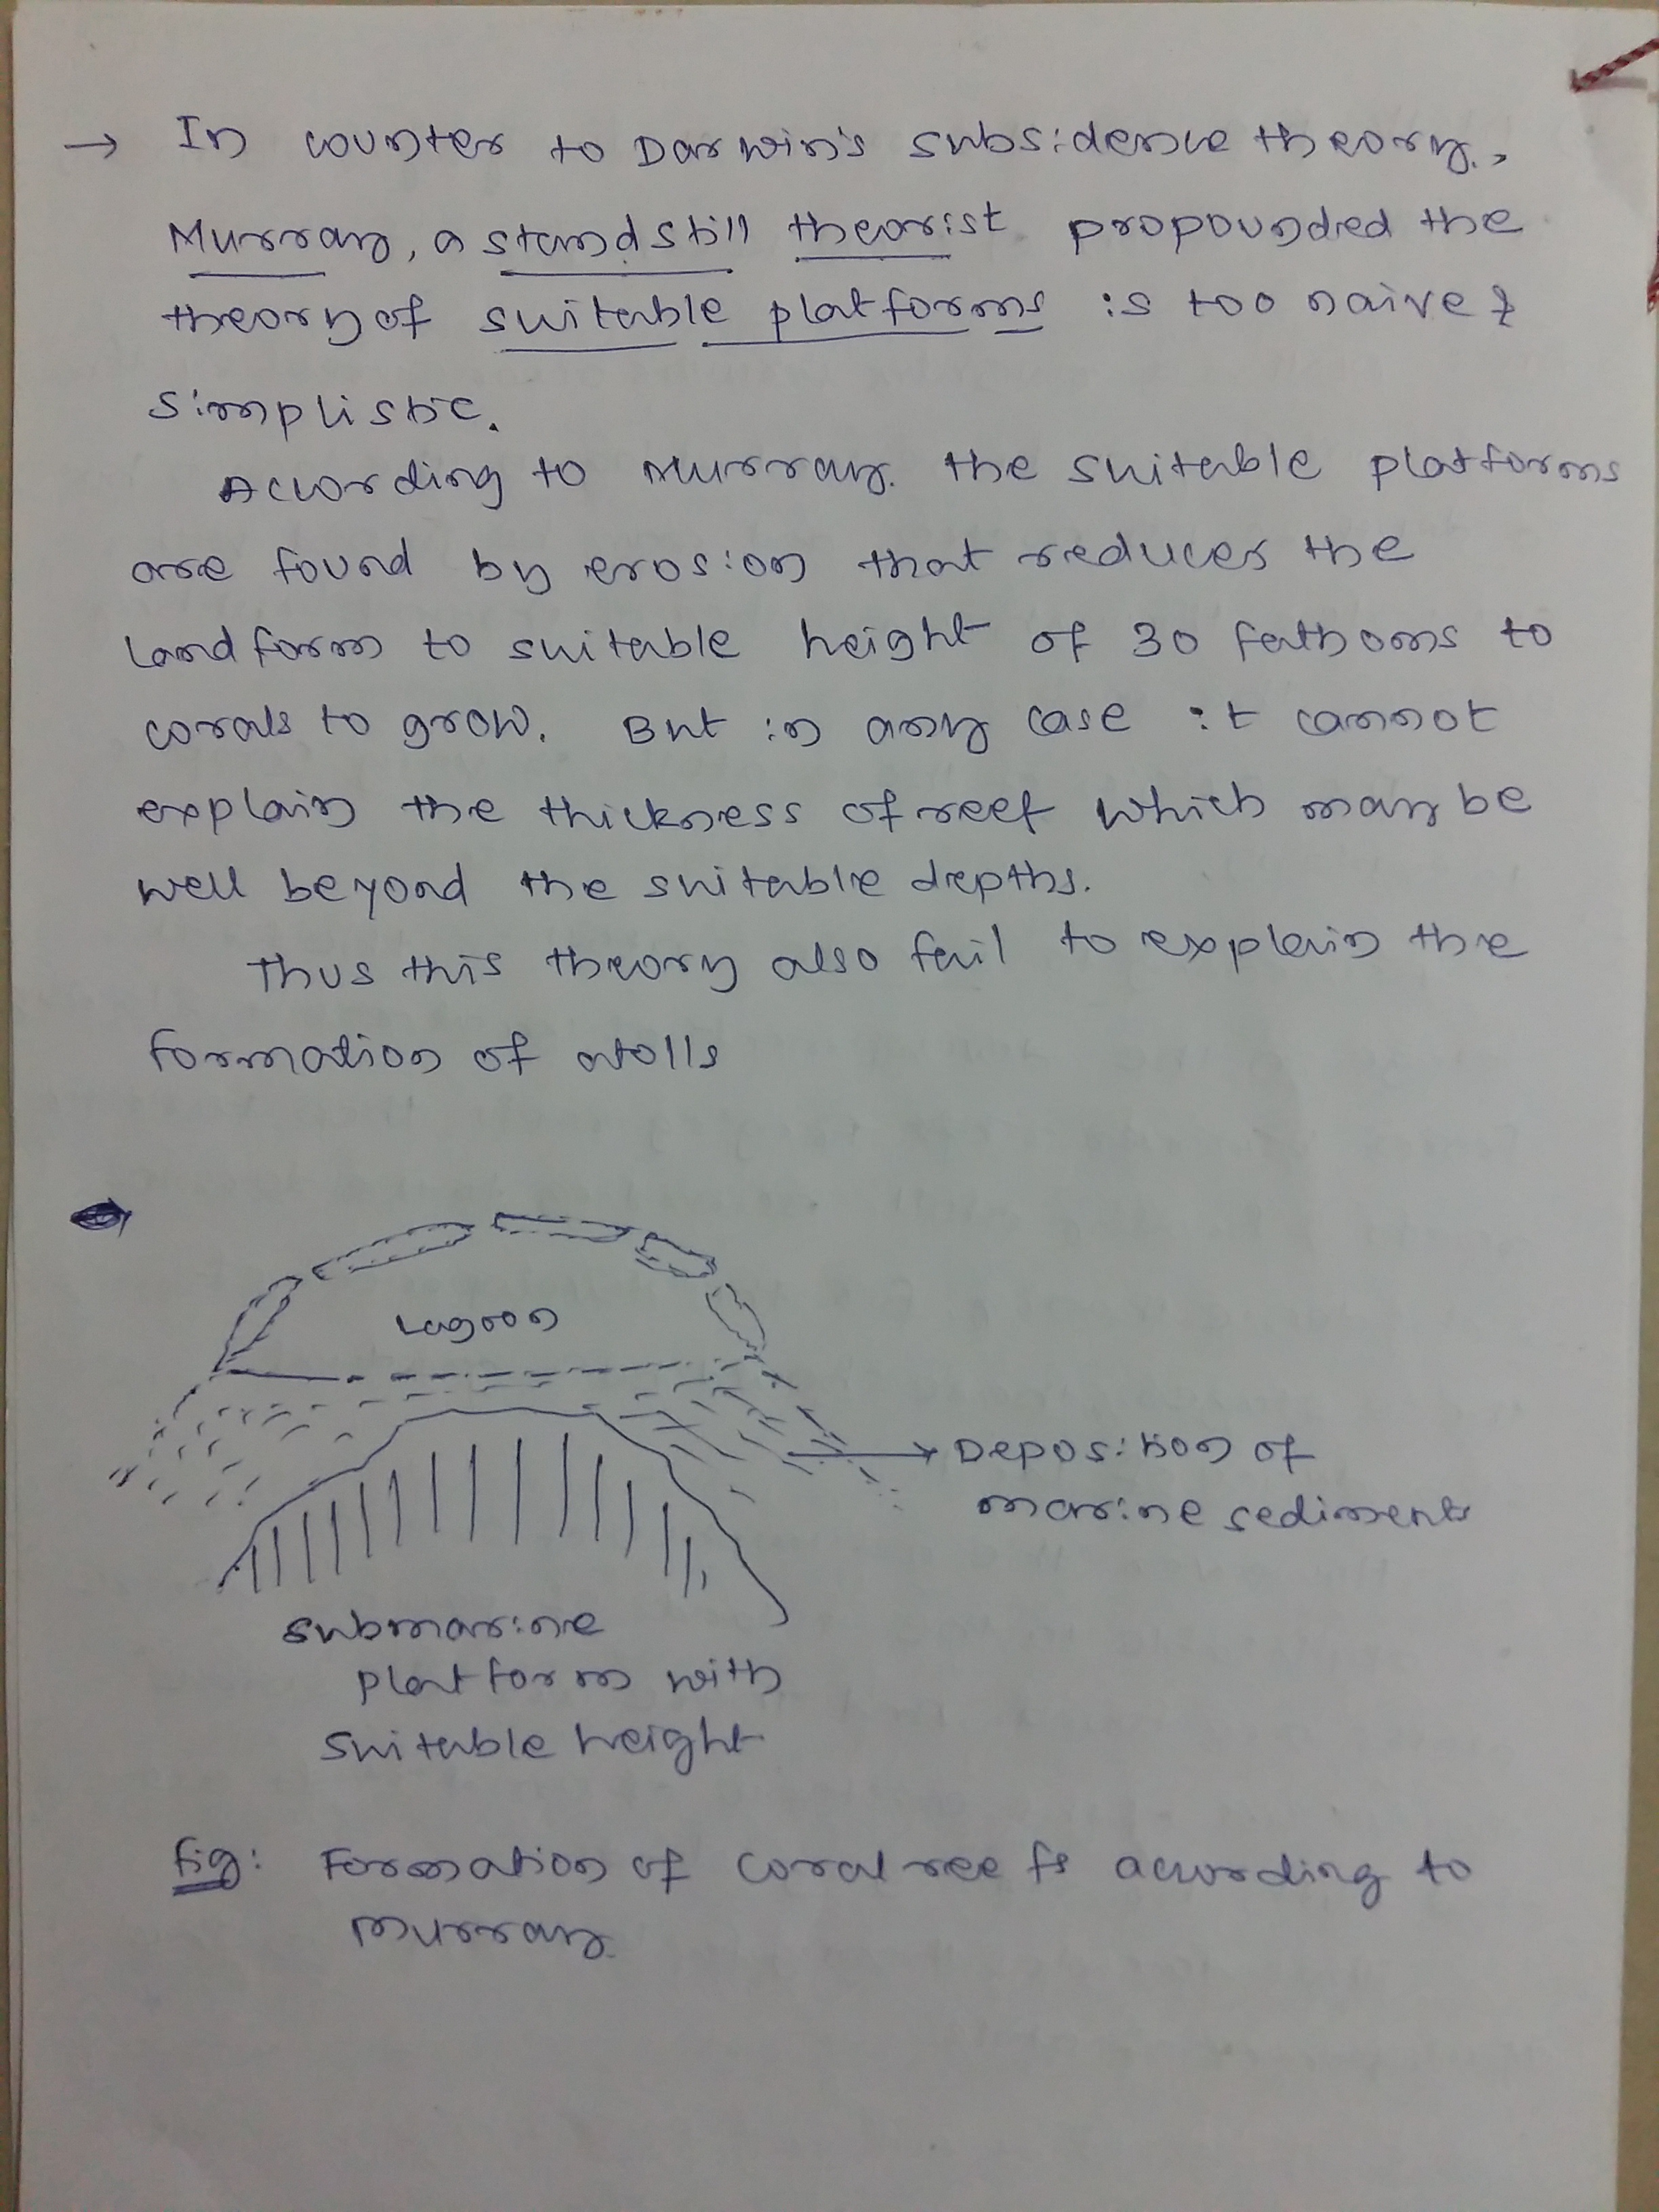 → In counter to Darwin's subsidence theory,
Murray, a standstill theorist propounded the
theory of suitable platforms is too naive &
simplistic.
According to Murray. the suitable platforms
are found by erosion that reduces the
landform to suitable height of 30 fathoms to
corals to grow. But in any case it cannot
explain the thickness of reef which may be
well beyond the suitable depths.
Thus this theory also fail to explain the
formation of atolls
Lagoon
→ Deposition of
marine sediments
submarine
platform with
suitable height
fig: Formation of coral reefs according to
Murray.